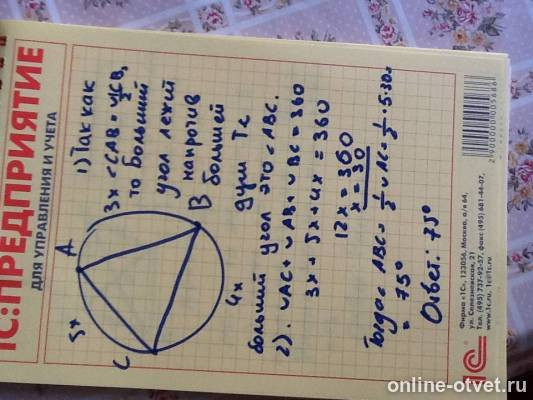 1С:ПРЕДПРИЯТИЕ
ДЛЯ УПРАВЛЕНИЯ И УЧЕТА
1) Так как
<CAB = ∪CB/2,
то больший
угол лежит
напротив
большей
дуги те
больший угол это <ABC.
A
B
C
3x
5x
4x
2). ∪AC + ∪AB + ∪BC = 360
3x + 5x + 4x = 360
12x = 360
x = 30
Тогда <ABC = 1/2 ∪AC = 1/2 · 5 · 30 =
= 75°
Ответ: 75°
1С
Фирма «1С», 123056, Москва, а/я 64,
ул. Селезневская, 21
Тел. (495) 737-92-57, факс (495) 681-44-07,
www.1c.ru, 1c@1c.ru
online-otvet.ru